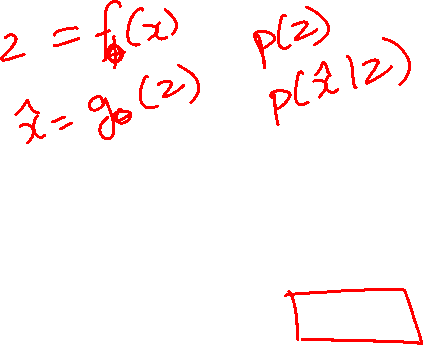 z = f_ϕ(x) p(z)
x̂ = g_θ(z) p(x̂|z)